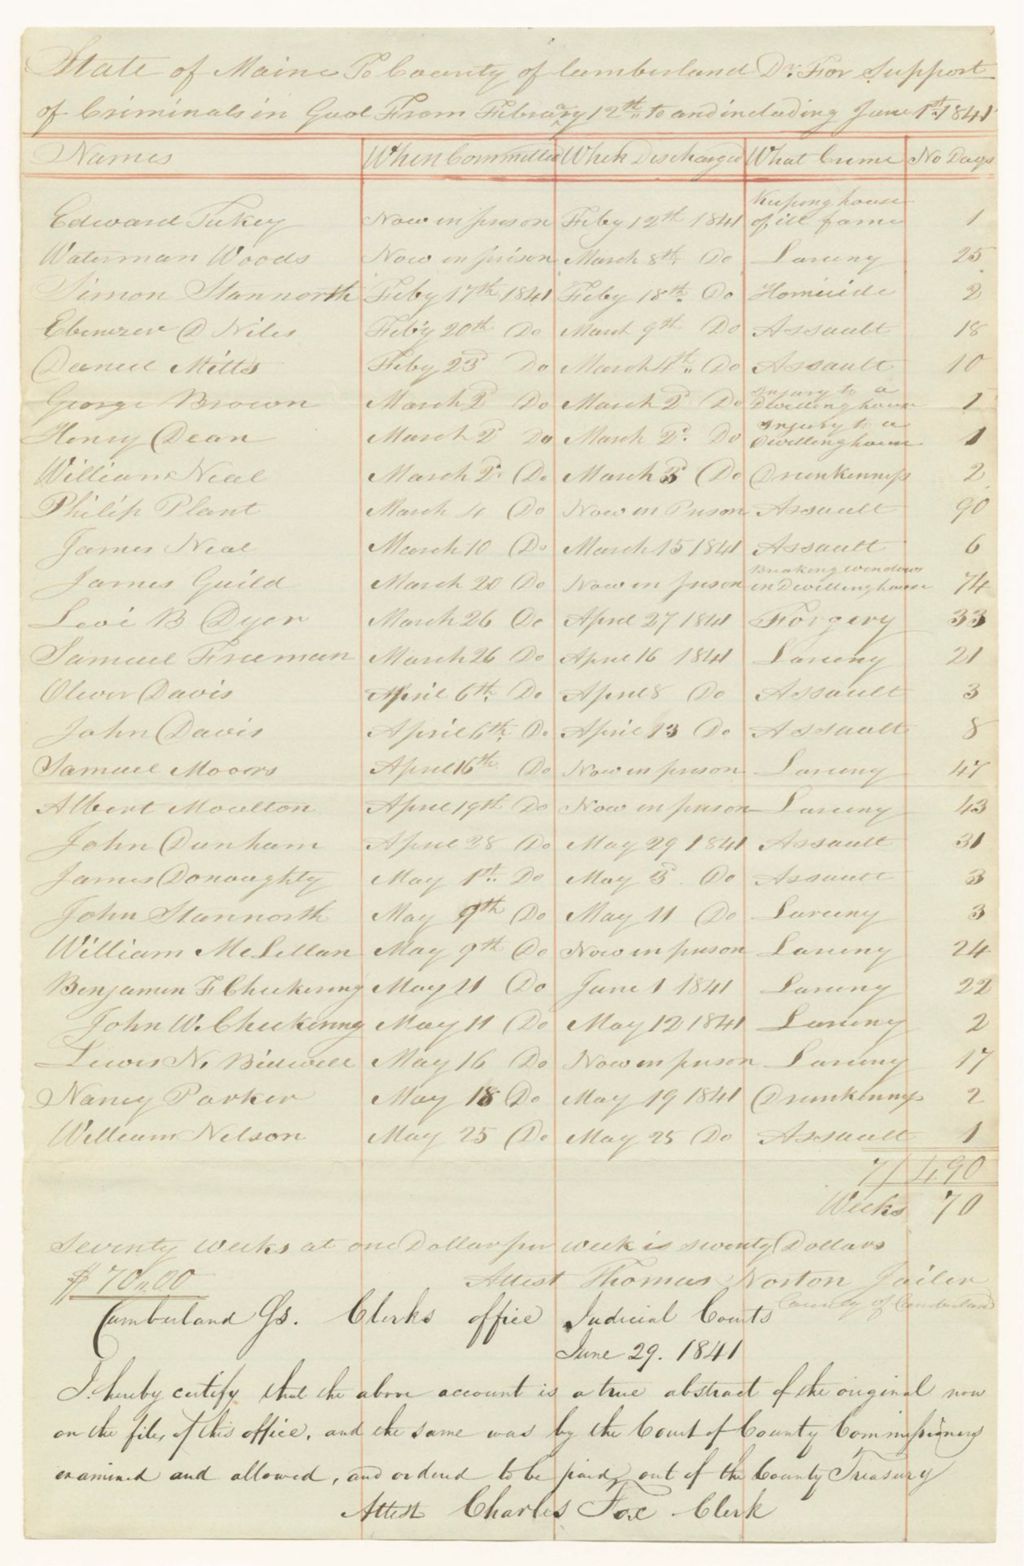 State of Maine To County of Cumberland Dr. For Support
of Criminals in Gaol From February 12th to and including June 1st 1841
Names When Committed When Discharged What Crime No Days
Edward Tukey Now in prison Feby 12th 1841 Keeping house of ill fame 1
Waterman Woods Now in prison March 8th Do Larceny 25
Simon Stannorth Feby 17th 1841 Feby 18th Do Homicide 2
Ebenezer D Niles Feby 20th Do March 9th Do Assault 18
Daniel Mitts Feby 23d Do March 4th Do Assault 10
George Brown March 2d Do March 2d Do Injury to a Dwelling house 1
Henry Dean March 2d Do March 2d Do Injury to a Dwelling house 1
William Neal March 2d Do March 3d Do Drunkenness 2
Philip Plant March 4 Do Now in Prison Assault 90
James Neal March 10 Do March 15 1841 Assault 6
James Guild March 20 Do Now in prison Breaking windows in Dwelling house 74
Levi B Dyer March 26 Do April 27 1841 Forgery 33
Samuel Freeman March 26 Do April 16 1841 Larceny 21
Oliver Davis April 6th Do April 8 Do Assault 3
John Davis April 6th Do April 13 Do Assault 8
Samuel Moors April 16th Do Now in prison Larceny 47
Albert Moulton April 19th Do Now in prison Larceny 43
John Dunham April 28 Do May 29 1841 Assault 31
James Donaughty May 1st Do May 3 Do Assault 3
John Stannorth May 9th Do May 11 Do Larceny 3
William McLellan May 9th Do Now in prison Larceny 24
Benjamin F Chickering May 11 Do June 1 1841 Larceny 22
John W. Chickering May 11 Do May 12 1841 Larceny 2
Lewis N. Bidwell May 16 Do Now in prison Larceny 17
Nancy Parker May 18 Do May 19 1841 Drunkenness 2
William Nelson May 25 Do May 25 Do Assault 1
7/490
Weeks 70
Seventy weeks at one Dollar per week is seventy Dollars
$70.00 Attest Thomas Norton Jailer
County of Cumberland
Cumberland Ss. Clerks office Judicial Courts
June 29. 1841
I hereby certify that the above account is a true abstract of the original now
on the files of this office, and the same was by the Court of County Commissioners
examined and allowed, and ordered to be paid, out of the County Treasury
Attest Charles Fox Clerk